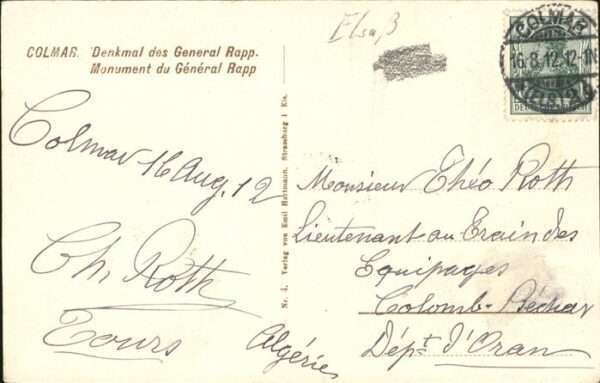 COLMAR. Denkmal des General Rapp.
Monument du Général Rapp
Elsaß
COLMAR
16.8.12.12-1N
Colmar 16 Aug. 12
Ch. Roth
Tours
Nr. 4. Verlag von Emil Hartmann, Strassburg i. Els.
Monsieur Théo Roth
Lieutenant au Train des
Equipages
Colomb-Béchar
Dépt d'Oran
Algérie